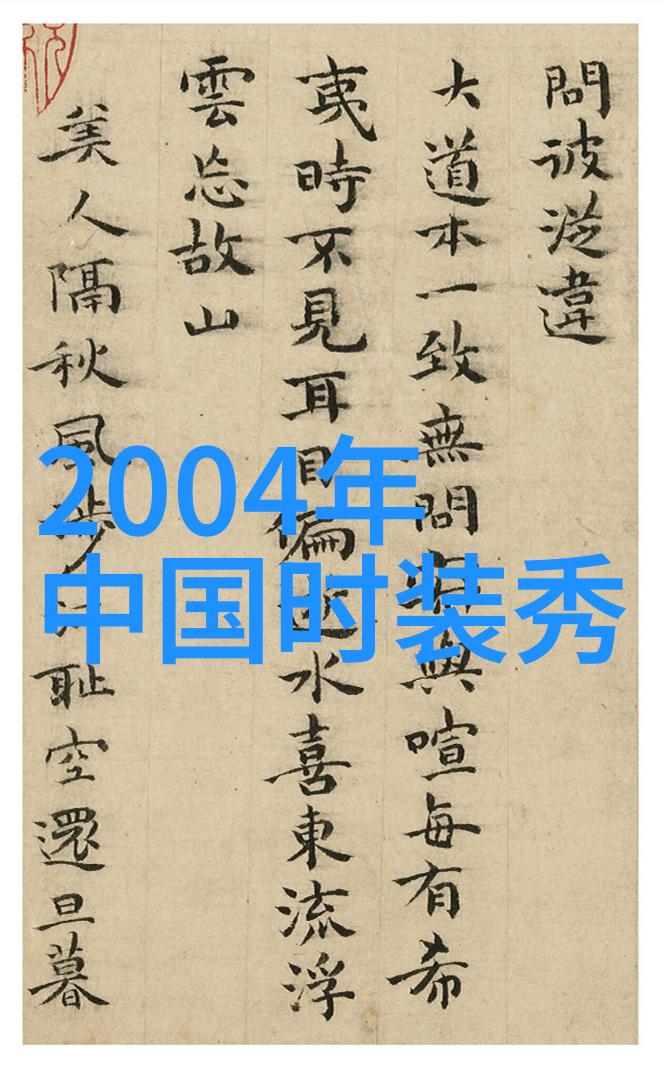 問彼從違
大道本一致無問與喧每有希
夷時不見耳目偏水喜東流浮
雲忘故山
美人隔秋風耻空還旦暮
2004年
中国时装秀